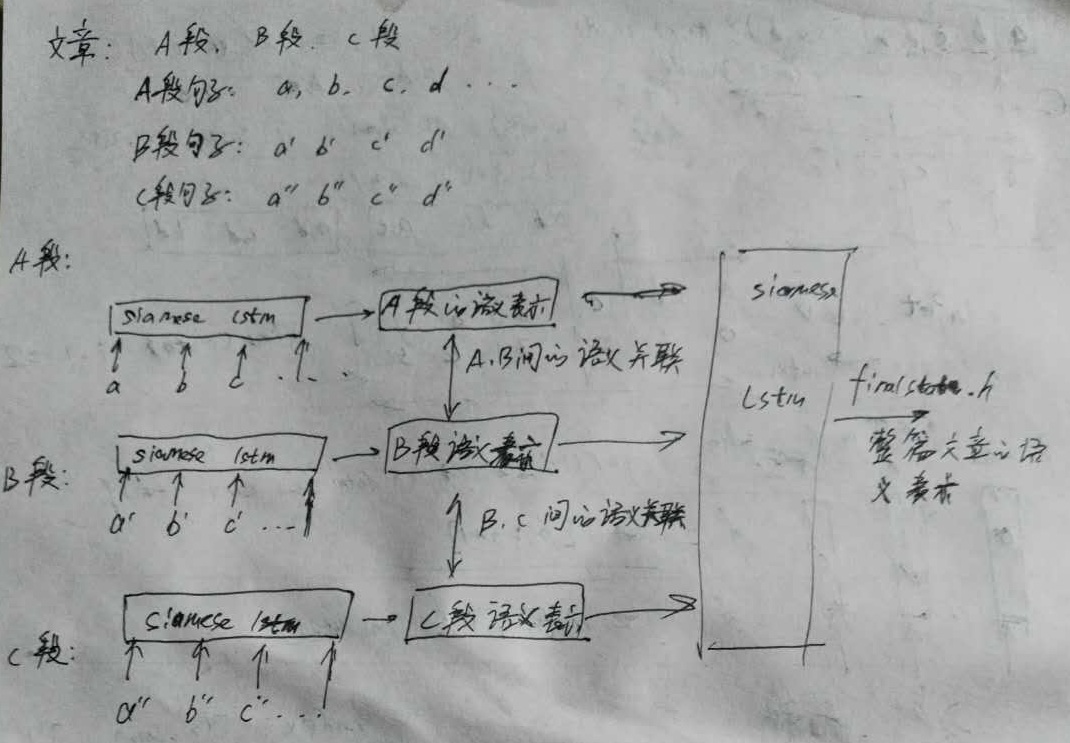 文章: A段、B段、C段
A段句子: a, b, c, d ...
B段句子: a' b' c' d'
C段句子: a" b" c" d"
A段:
siamese lstm
A段的语义表示
siamese
a b c ...
A.B间的语义关联
Lstm
finalstate.h
整篇文章的语
义表示
B段:
siamese lstm
B段语义表示
a' b' c' ...
B.C间的语义关联
C段:
siamese lstm
C段语义表示
a" b" c" ...